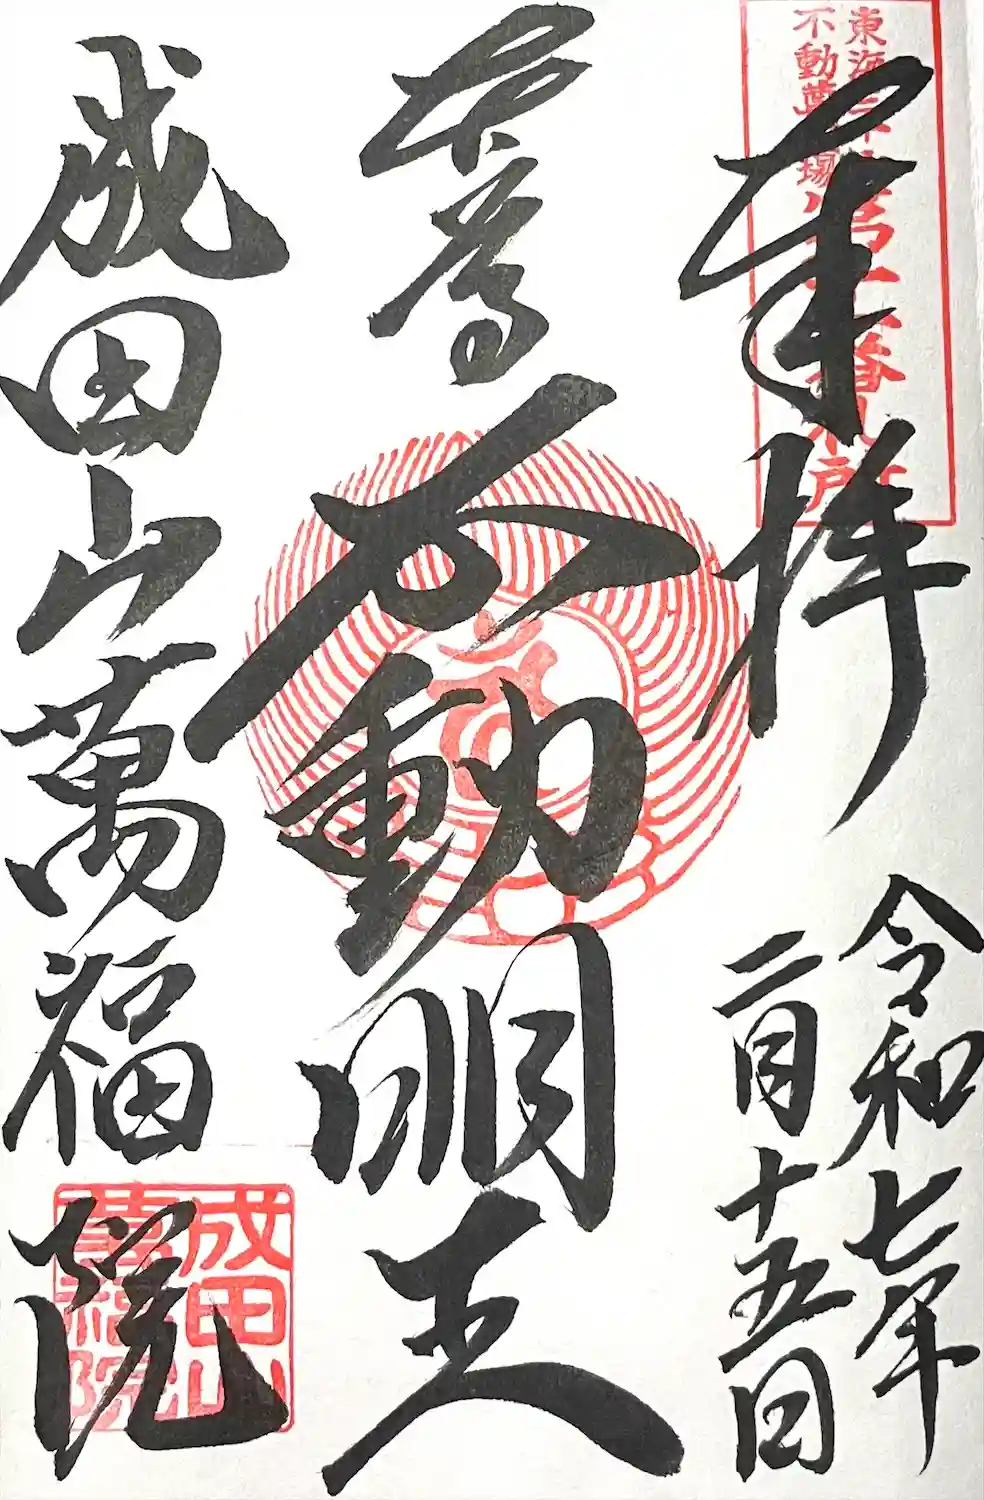 東海三十
不動尊 場
第 番札所
奉拝
令和七年
二月十五日
本尊
不動明王
成田山萬福院
成田山
萬福院